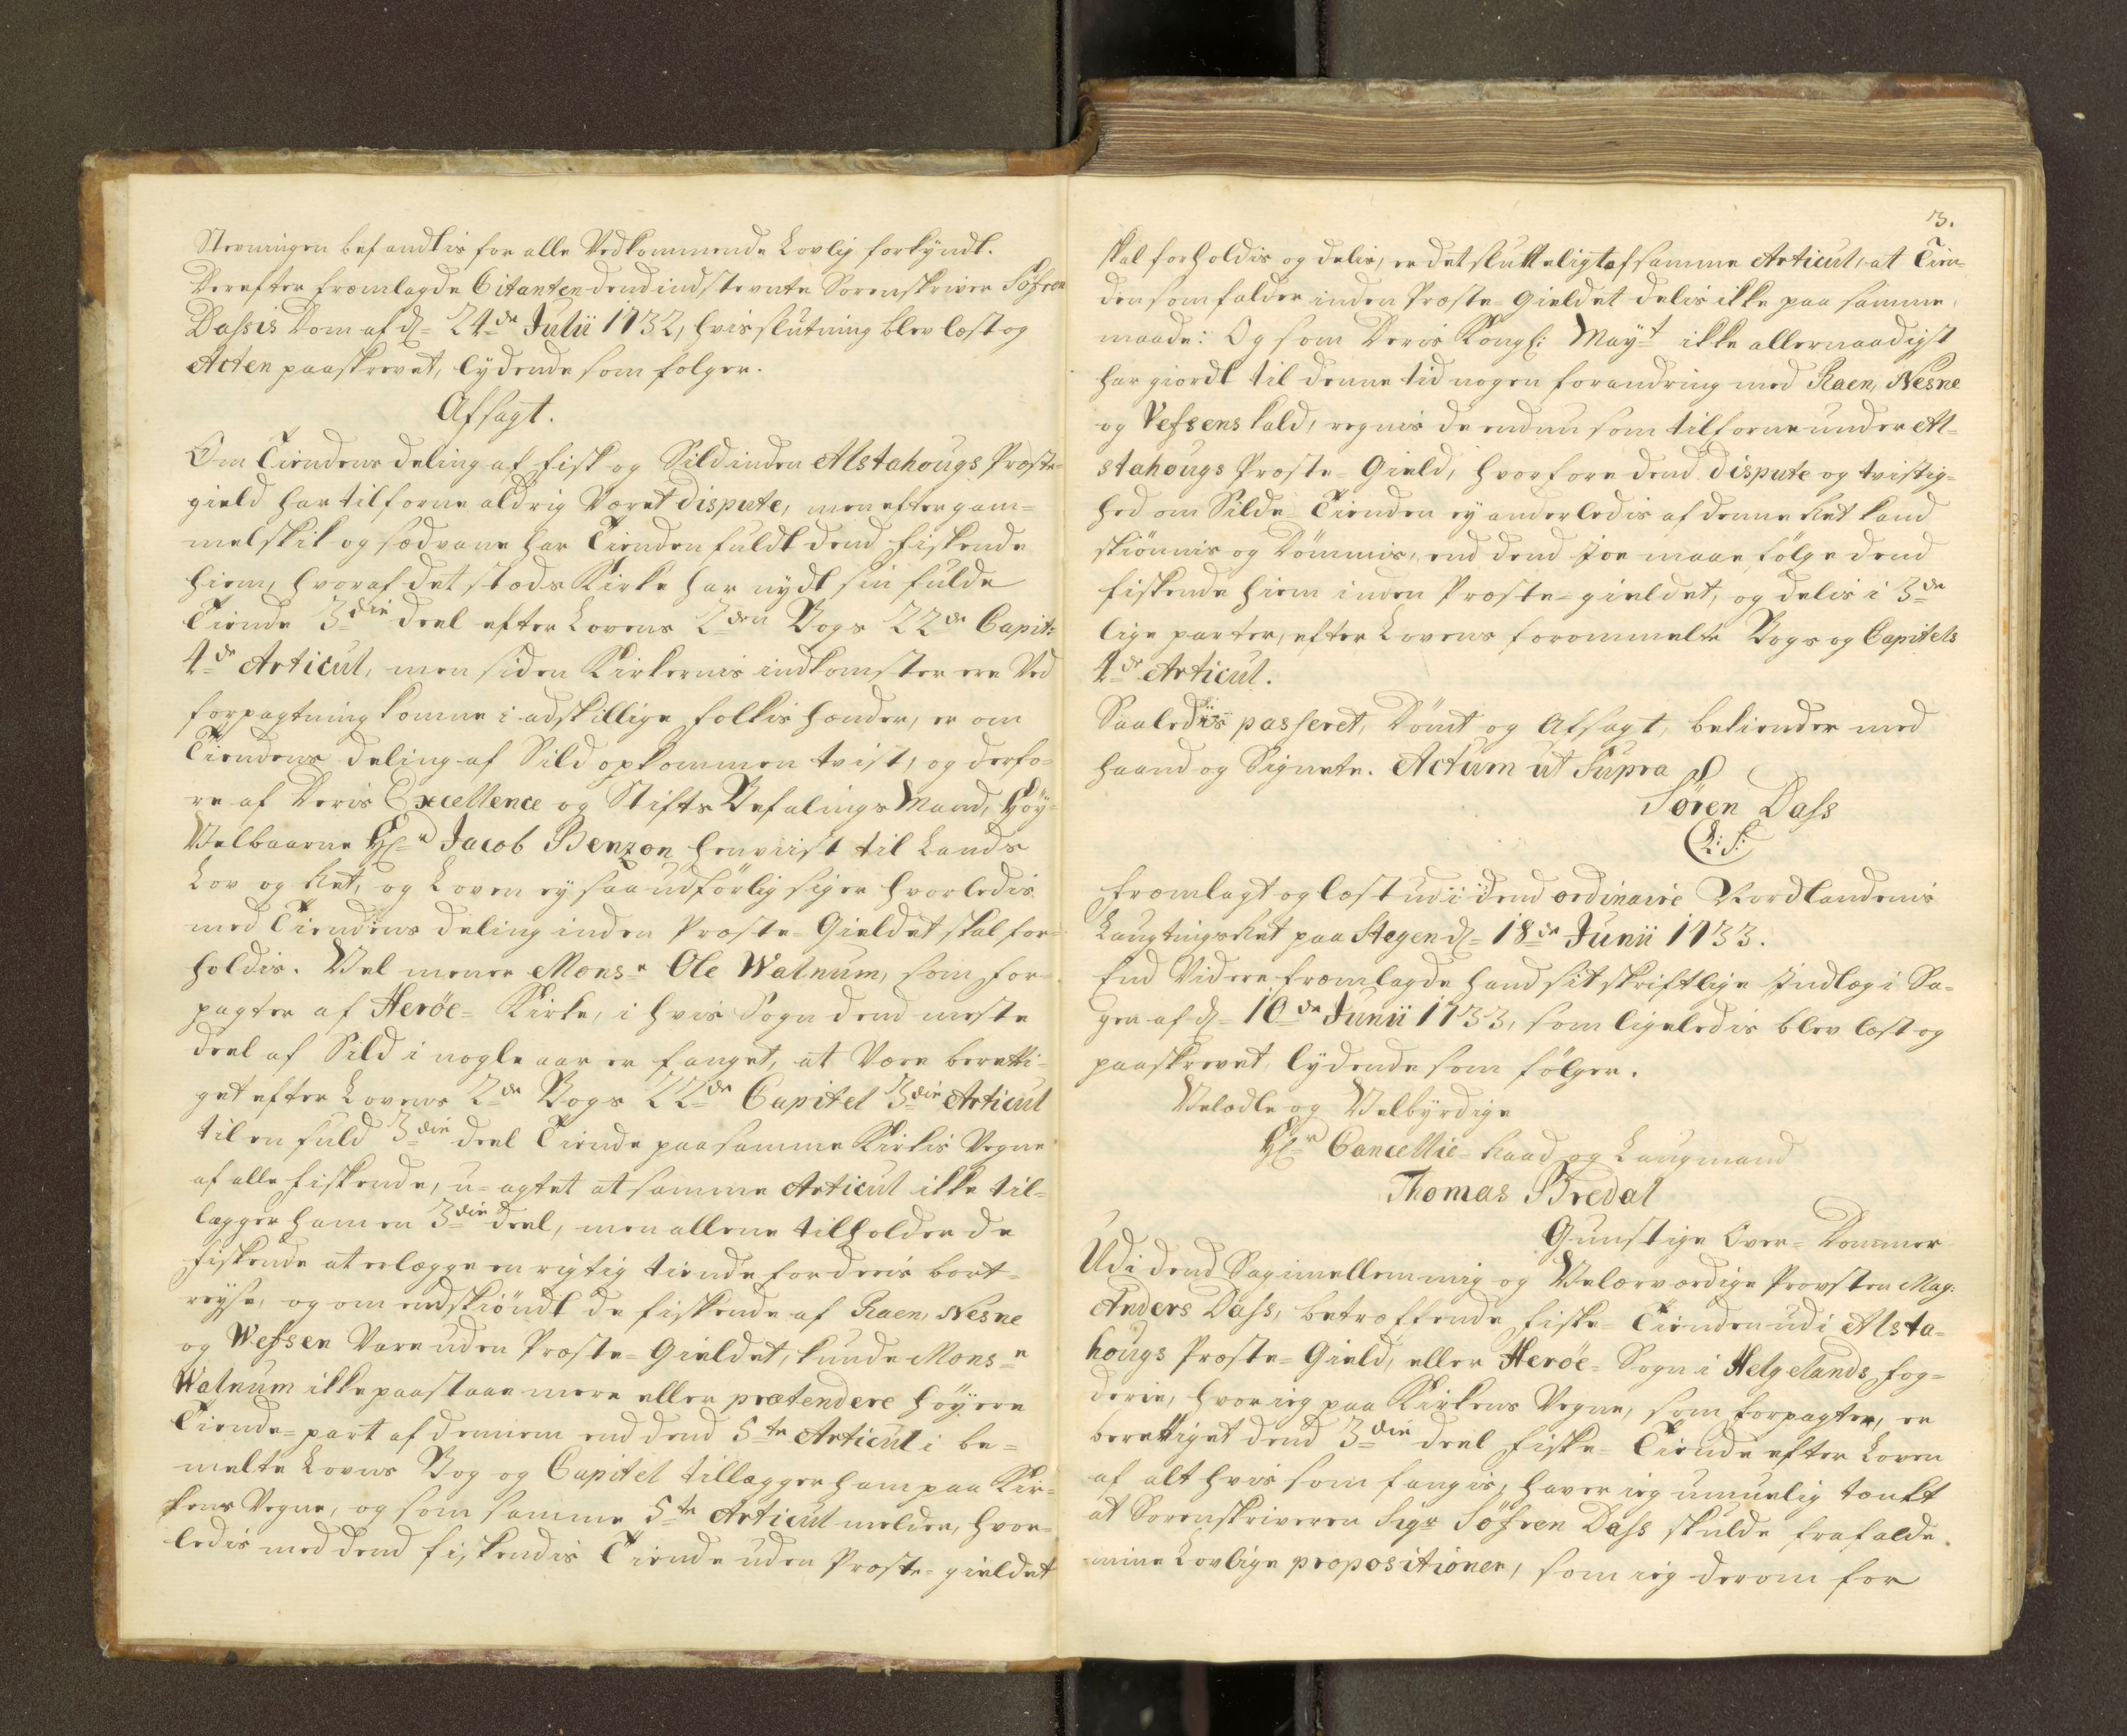 Stevningen befandtis for alle Vedkommende Lovlig forkyndt.
Derefter fremlagde Citanten dend indstevnte Sorenskriver Söfren
Dassis Dom af d. 24de Julii 1732, hvis slutning blev læst og
Acten paaskrevet, lydende som følger.
Afsagt.
Om Tiendens deling af fisk og Sild inden Alstahougs Præste-
gield har tilforne aldrig Været dispute, men efter gam-
mel skik og sædvane har Tienden fuldt dend fiskende
hiem, hvoraf det stæds Kirke har nydt sin fulde
Tiende 3die deel efter Lovens 2den Bogs 22de Capit:
4de Articul, men siden Kirkernis indkomster ere Ved
forpagtning komne i adskillige folkis hænder, er om
Tiendens deling af Sild opkommen tvist, og derfo-
re af Deris Excellence og Stifts Befalings Mand, Höy-
Velbaarne Hr Jacob Benzon henviist til Lands
Lov og Ret, og Loven ey saa udförlig siger hvorledis
med Tiendens deling inden Præste-Gieldet skal for-
holdis. Vel mener Monsr Ole Walnum, som for-
pagter af Heröe-Kirke, i hvis Sogn dend meste
deel af Sild i nogle aar er fanget, at Være beretti-
get efter Lovens 2de Bogs 22de Capitel 3die Articul
til en fuld 3die deel Tiende paa samme Kirkis Vegne
af alle fiskende, u-agtet at samme Articul ikke til-
lægger ham en 3die deel, men allene tilholder de
fiskende at erlægge en rigtig tiende for deris bort-
reyse, og om endskiöndt de fiskende af Raen, Nesne
og Wefsen Vare uden Præste-Gieldet, kunde Monsr
Walnum ikke paastaae mere eller prætendere höyere
Tiende-part af dennem end dend 5te Articul i be-
melte Lovens Bog og Capitel tillægger ham paa Kir-
kens Vegne, og som samme 5te Articul melder, hvor-
ledis med dend fiskendis Tiende uden Præste-gieldet
3.
skal forholdis og delis, er det slutteligt af samme Articul, at Tien-
den som falder inden Præste-Gieldet delis ikke paa samme
maade: Og som Deris Kongl: Mayt ikke allernaadigst
har giordt til denne tid nogen forandring med Raen, Nesne
og Vefsens kald, regnis de endnu som tilforne under Al-
stahougs Præste-Gield, hvorfore dend dispute og tvistig-
hed om Silde Tienden ey anderledis af denne Ret kand
skiönnis og Dömmis, end dend joe maae fölge dend
fiskende hiem inden Præste-gieldet, og delis i 3de
lige parter, efter Lovens forommelte Bogs og Capitels
4de Articul.
Saaledis passeret, Dömt og Afsagt, bekiender med
haand og Signete. Actum ut Supra
Sören Dass
(L: S:)
Fremlagt og læst udi dend ordinaire Nordlandenis
Laugtings Ret paa Stegen d. 18de Junii 1733.
End Videre fremlagde hand sit skriftlige Indlæg i Sa-
gen af d. 10de Junii 1733, som ligeledis blev læst og
paaskrevet, lydende som fölger.
Velædle og Velbyrdige
Hr Cancellie-Raad og Laugmand
Thomas Bredal
Gunstige Over-Dommer
Udi dend Sag imellem mig og Velærværdige Provsten Mag:
Anders Dass, betræffende fiske-Tienden udi Alsta-
hougs Præste-Gield, eller Heröe-Sogn i Helgelands fog-
derie, hvor ieg paa Kirkens Vegne, som forpagter, er
berettiget dend 3die deel fiske-Tiende efter Loven
af alt hvis som fangis, haver ieg umuelig tænkt
at Sorenskriveren Sigr Söfren Dass skulde frafalde
mine Lovlige propositioner, som ieg derom for